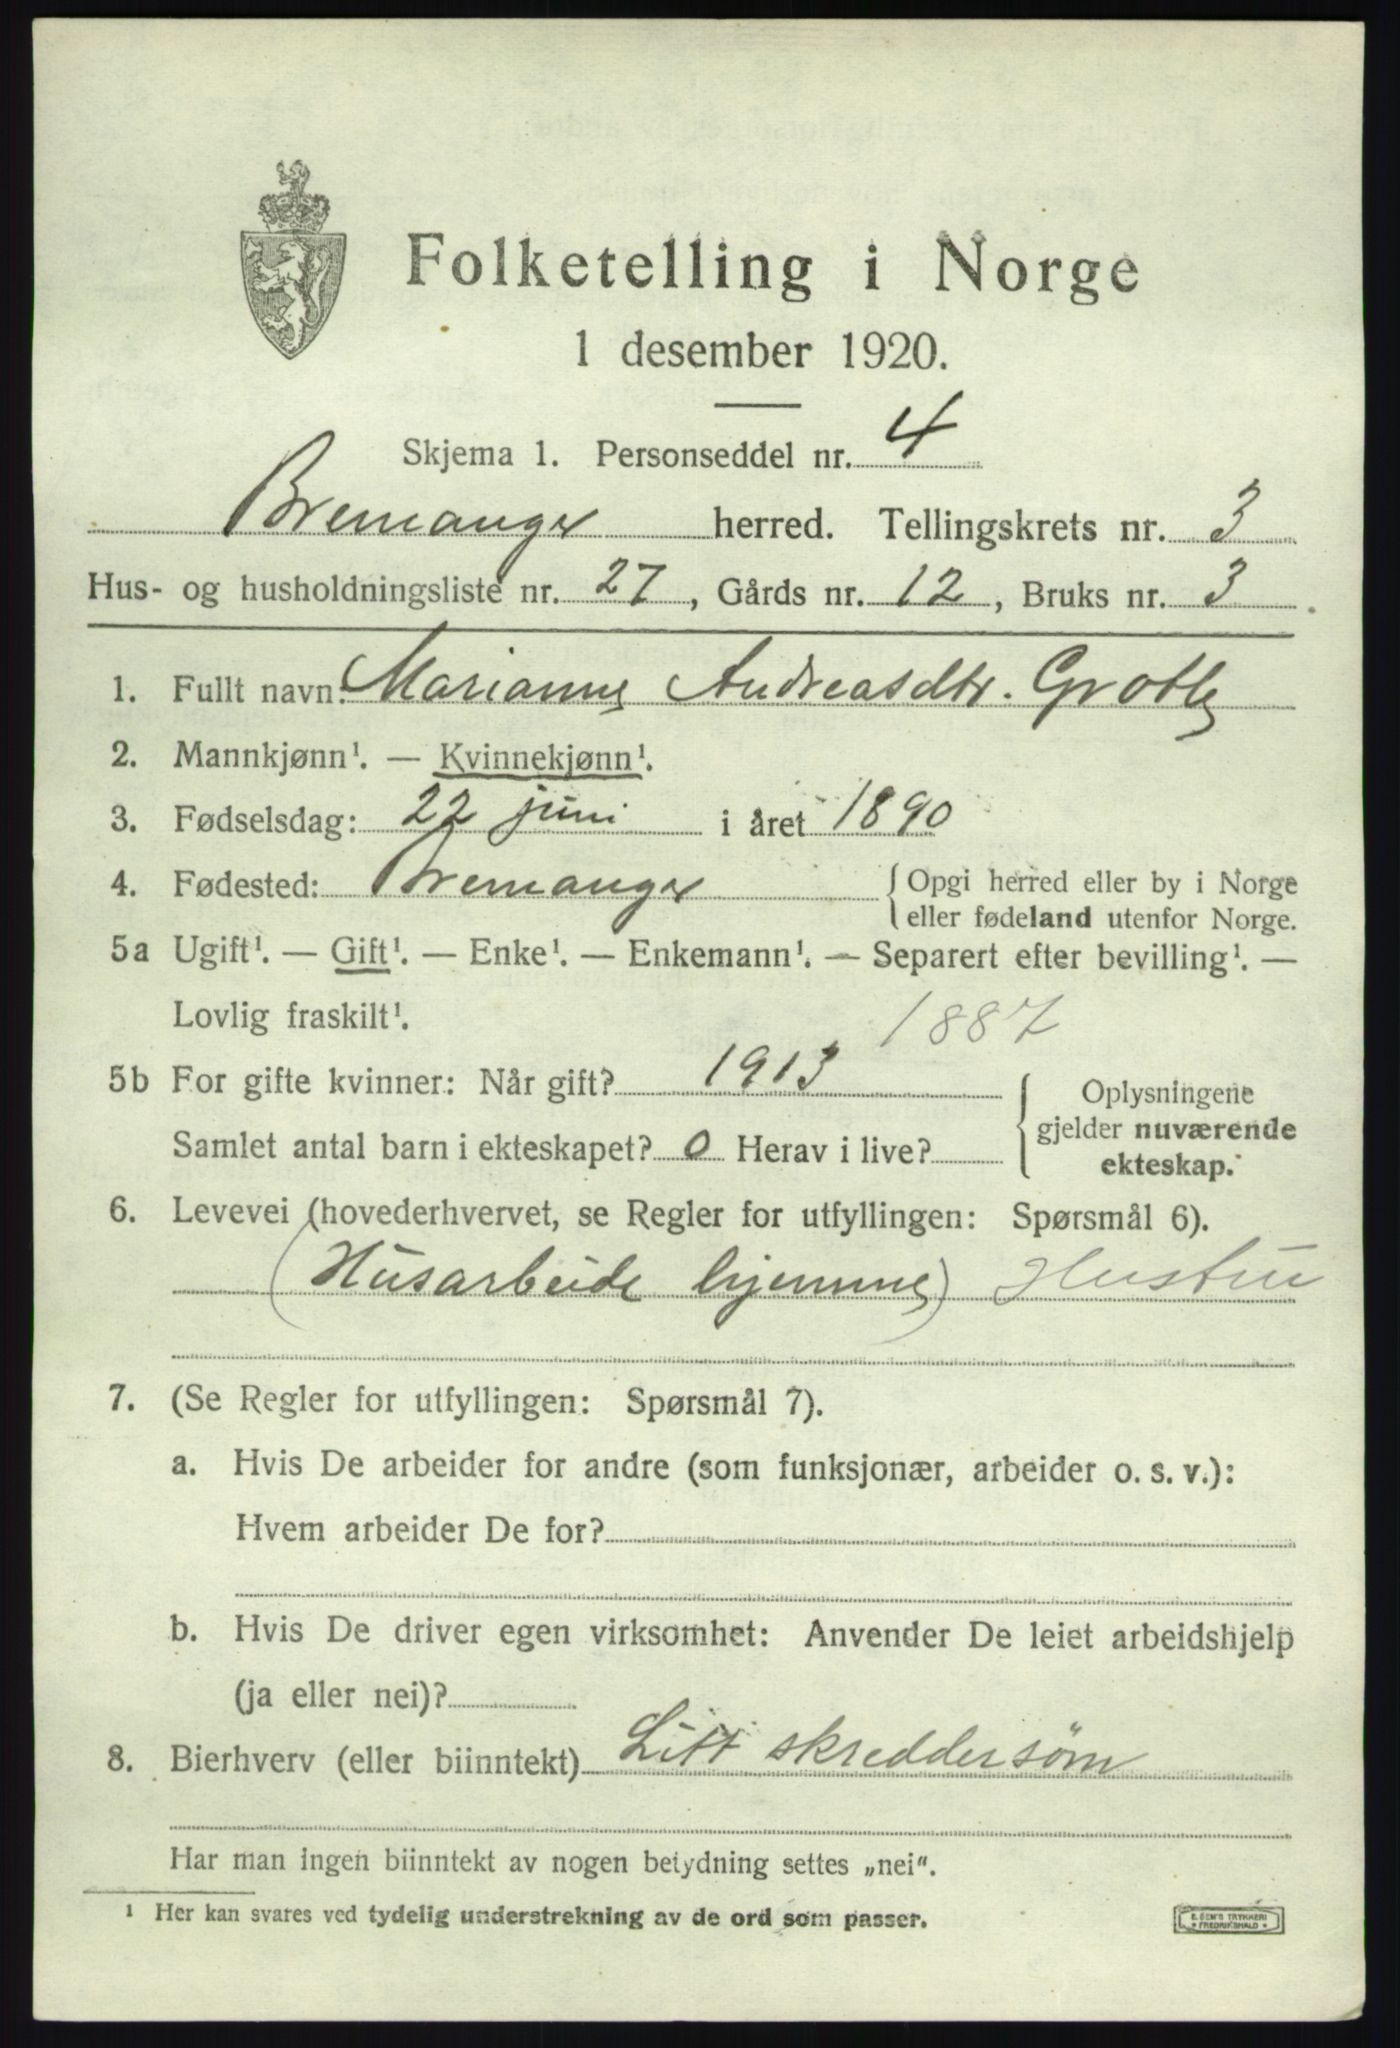 Folketelling i Norge
1 desember 1920.
Skjema 1. Personseddel nr. 4
Bremanger herred. Tellingskrets nr. 3
Hus- og husholdningsliste nr. 27, Gårds nr. 12, Bruks nr. 3
1. Fullt navn: Marianne Andreasdtr. Grotle
2. Mannkjønn¹. — Kvinnekjønn¹.
3. Fødselsdag: 22 juni i året 1890
4. Fødested: Bremanger { Opgi herred eller by i Norge
eller fødeland utenfor Norge.
5a Ugift¹. — Gift¹. — Enke¹. — Enkemann¹. — Separert efter bevilling¹. —
Lovlig fraskilt¹. 1887
5b For gifte kvinner: Når gift? 1913 { Oplysningene
gjelder nuværende
ekteskap.
Samlet antal barn i ekteskapet? 0 Herav i live?
6. Levevei (hovederhvervet, se Regler for utfyllingen: Spørsmål 6).
(Husarbeide hjemme) Hustru
7. (Se Regler for utfyllingen: Spørsmål 7).
a. Hvis De arbeider for andre (som funksjonær, arbeider o. s. v.):
Hvem arbeider De for?
b. Hvis De driver egen virksomhet: Anvender De leiet arbeidshjelp
(ja eller nei)?
8. Bierhverv (eller biinntekt) Litt skreddersøm
Har man ingen biinntekt av nogen betydning settes „nei".
¹ Her kan svares ved tydelig understrekning av de ord som passer.
E. SEM'S TRYKKERI
FREDRIKSHALD